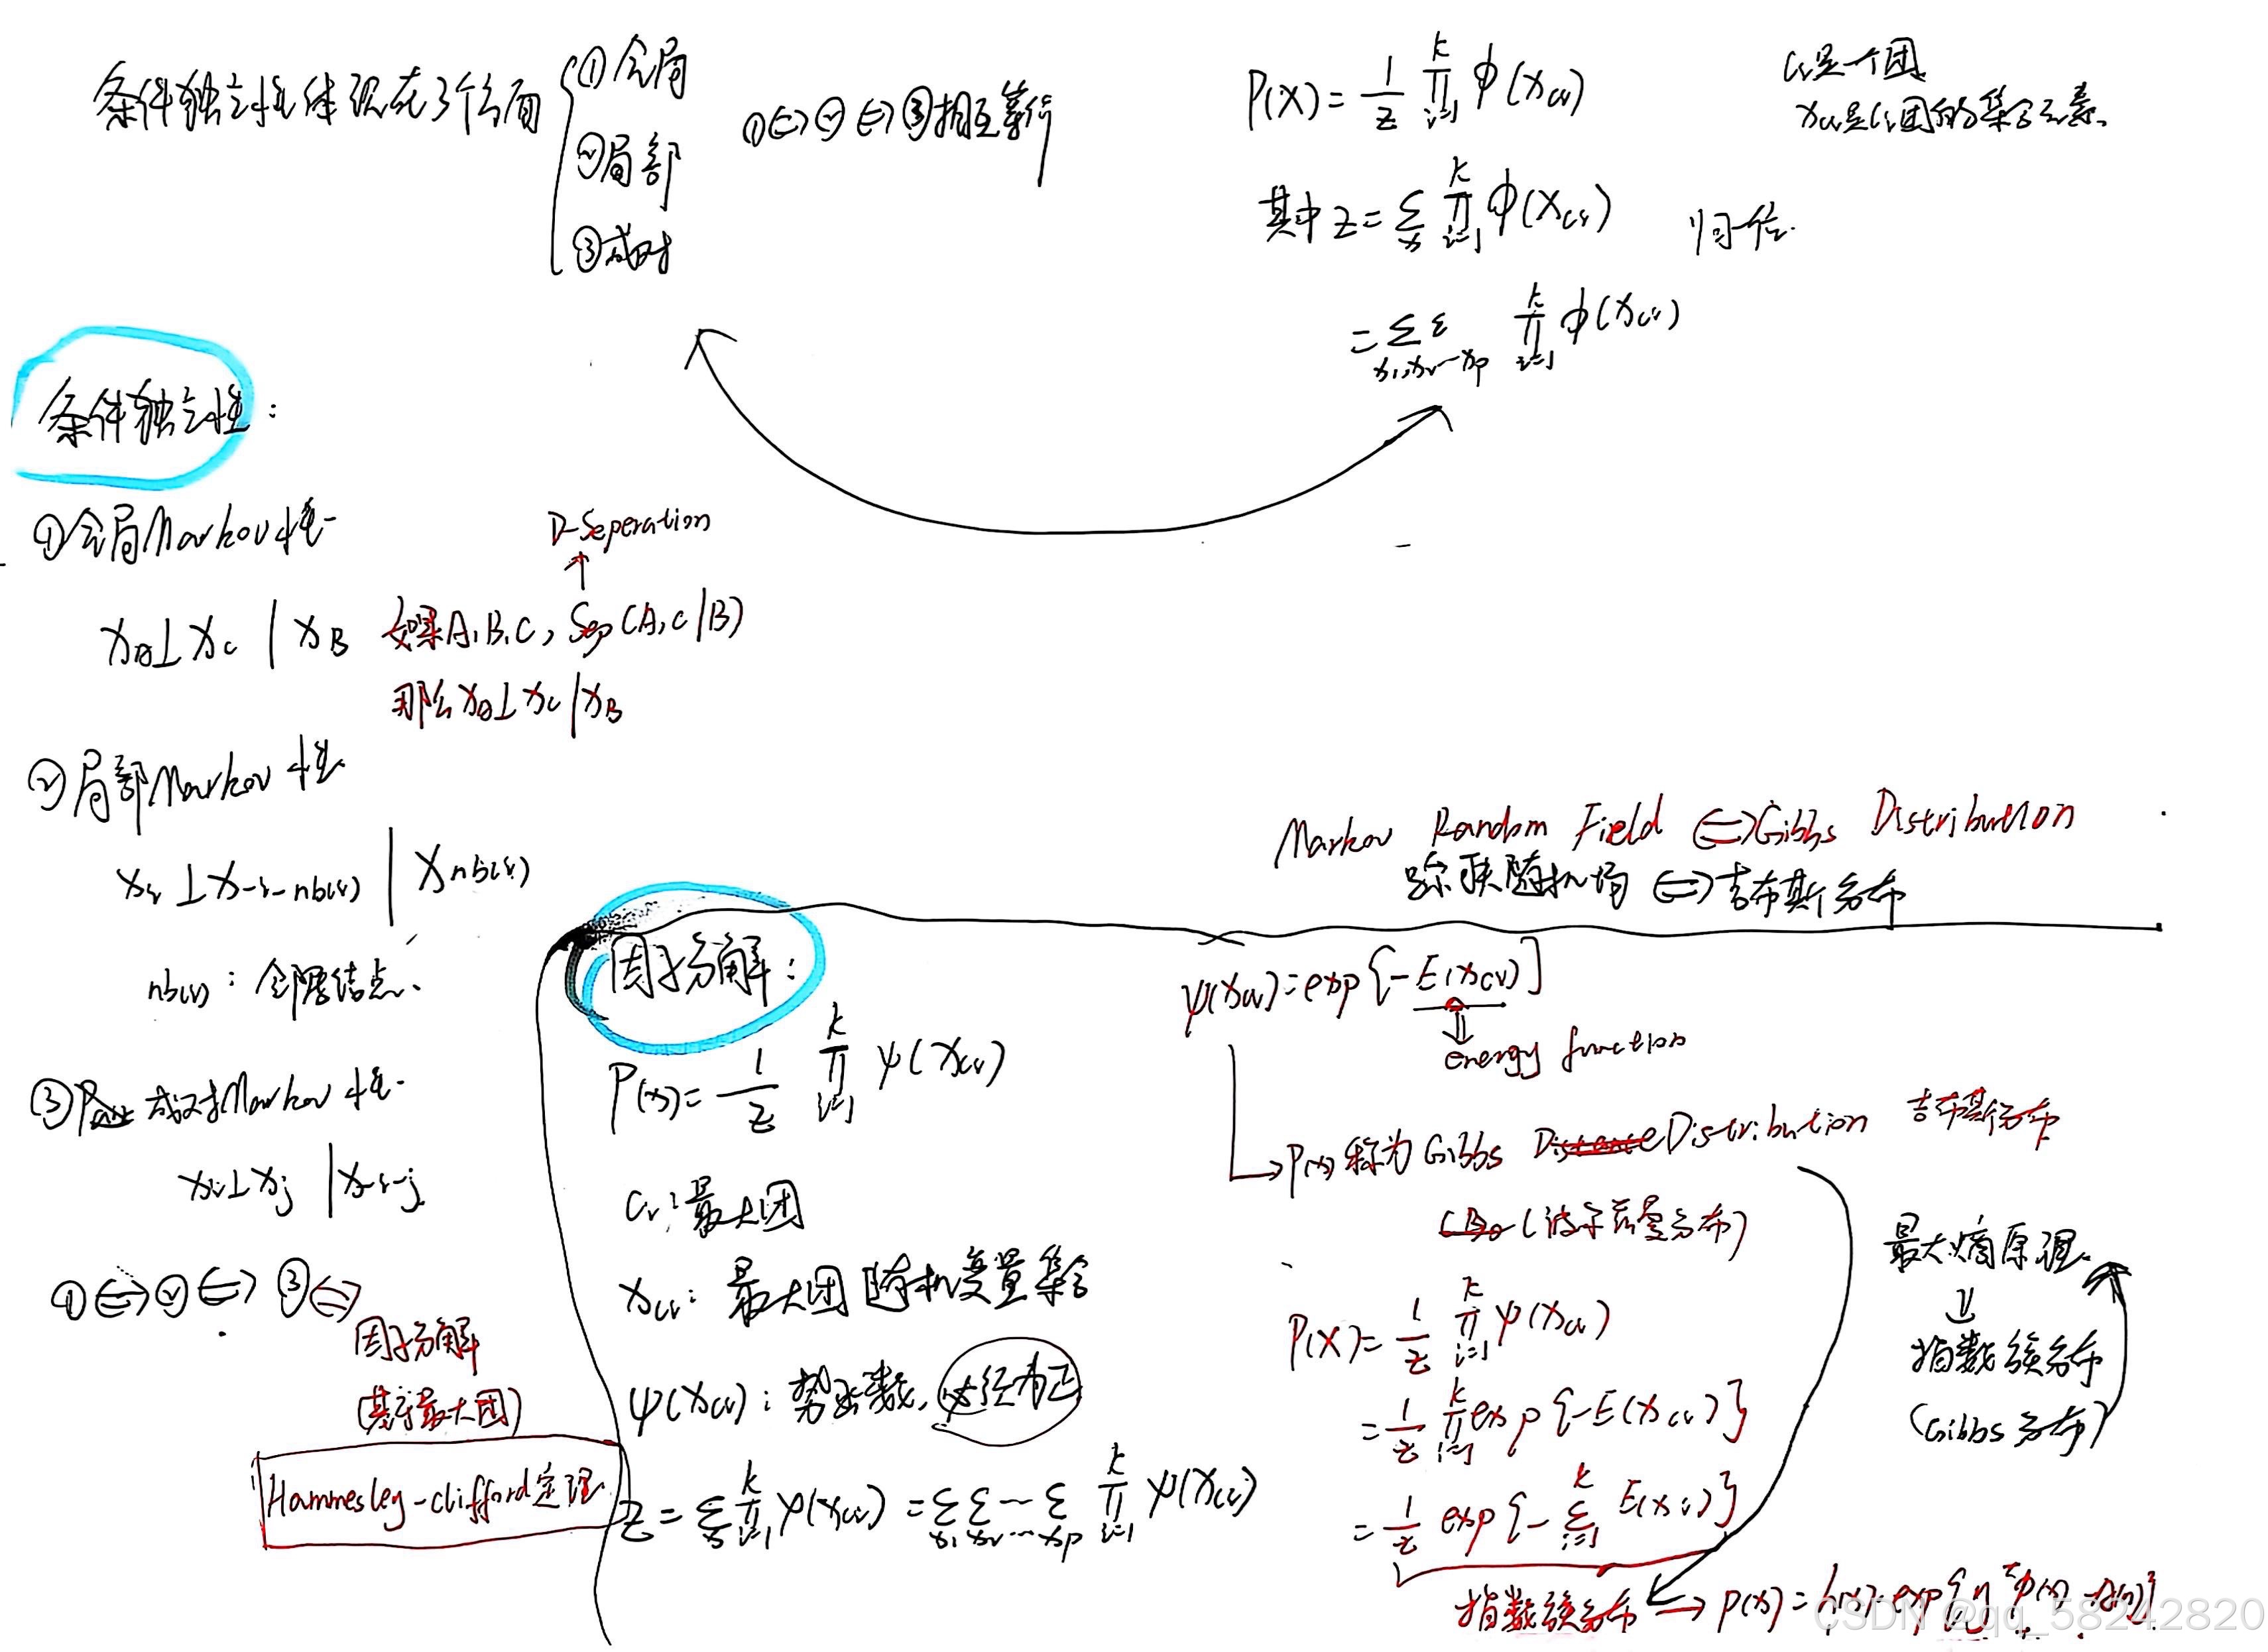 条件独立性体现在3个方面
①全局
②局部
③成对
①⇔②⇔③相互等价
P(X) = 1/Z ∏_{i=1}^{K} φ(x_{ci})
ci是一个团
x_{ci}是ci团的集合元素。
其中 Z = ∑_x ∏_{i=1}^{K} φ(x_{ci}) 归一化.
= ∑∑_{x1,x2…xp} ∏_{i=1}^{K} φ(x_{ci})
条件独立性:
①全局Markov性
D-Seperation
↑
x_A⊥x_C | x_B 如果A,B,C, Sep(A,C|B)
那么x_A⊥x_C|x_B
②局部Markov性
x_i⊥x_{-i-nb(i)} | x_{nb(i)}
nb(i): 邻居结点.
③ 成对Markov性.
x_i⊥x_j | x_{-i-j}
①⇔②⇔③⇔
因子分解
(基于最大团)
Hammesley-clifford定理
因子分解:
P(x) = 1/Z ∏_{i=1}^{K} ψ(x_{ci})
ci:最大团
x_{ci}: 最大团随机变量集合
ψ(x_{ci}): 势函数, 必须为正
Z = ∑_x ∏_{i=1}^{K} ψ(x_{ci}) = ∑_{x1}∑_{x2}…∑_{xp} ∏_{i=1}^{K} ψ(x_{ci})
Markov Random Field ⇔ Gibbs Distribution
随机场 ⇔ 吉布斯分布
ψ(x_{ci}) = exp{-E(x_{ci})}
⇓
energy function
→P(x)称为Gibbs Distribution 吉布斯分布
(波尔兹曼分布)
P(X) = 1/Z ∏_{i=1}^{K} ψ(x_{ci})
= 1/Z ∏_{i=1}^{K} exp{-E(x_{ci})}
= 1/Z exp{-∑_{i=1}^{K} E(x_{ci})}
指数族分布 → P(x) = h(x) exp{η^T φ(x) - A(η)}
最大熵原理
⇓
指数族分布
(Gibbs分布)
CSDN @qq_58242820